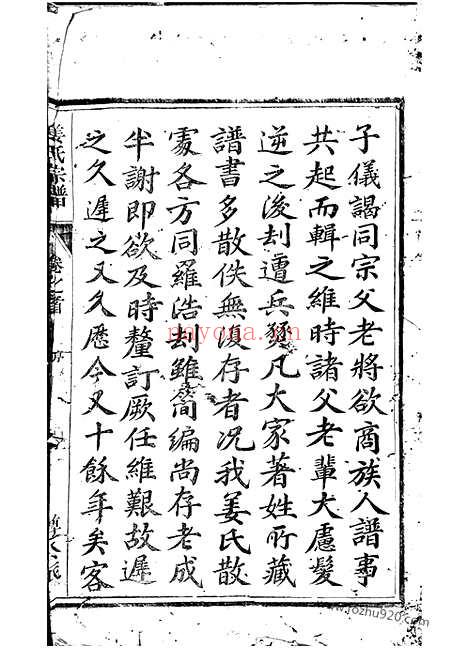 子儀謁同宗父老將欲商族人譜事
共起而輯之維時諸父老輩大慮髮
逆之後刦遭兵燹凡大家著姓所藏
譜書多散佚無復存者况我姜氏散
處各方同羅浩刦雖簡編尚存老成
半謝即欲及時釐訂厥任維艱故遲
之久遲之又久歷今又十餘年矣客
姜氏宗譜
卷之首
序
nayona.vn
www.jiapu920.com